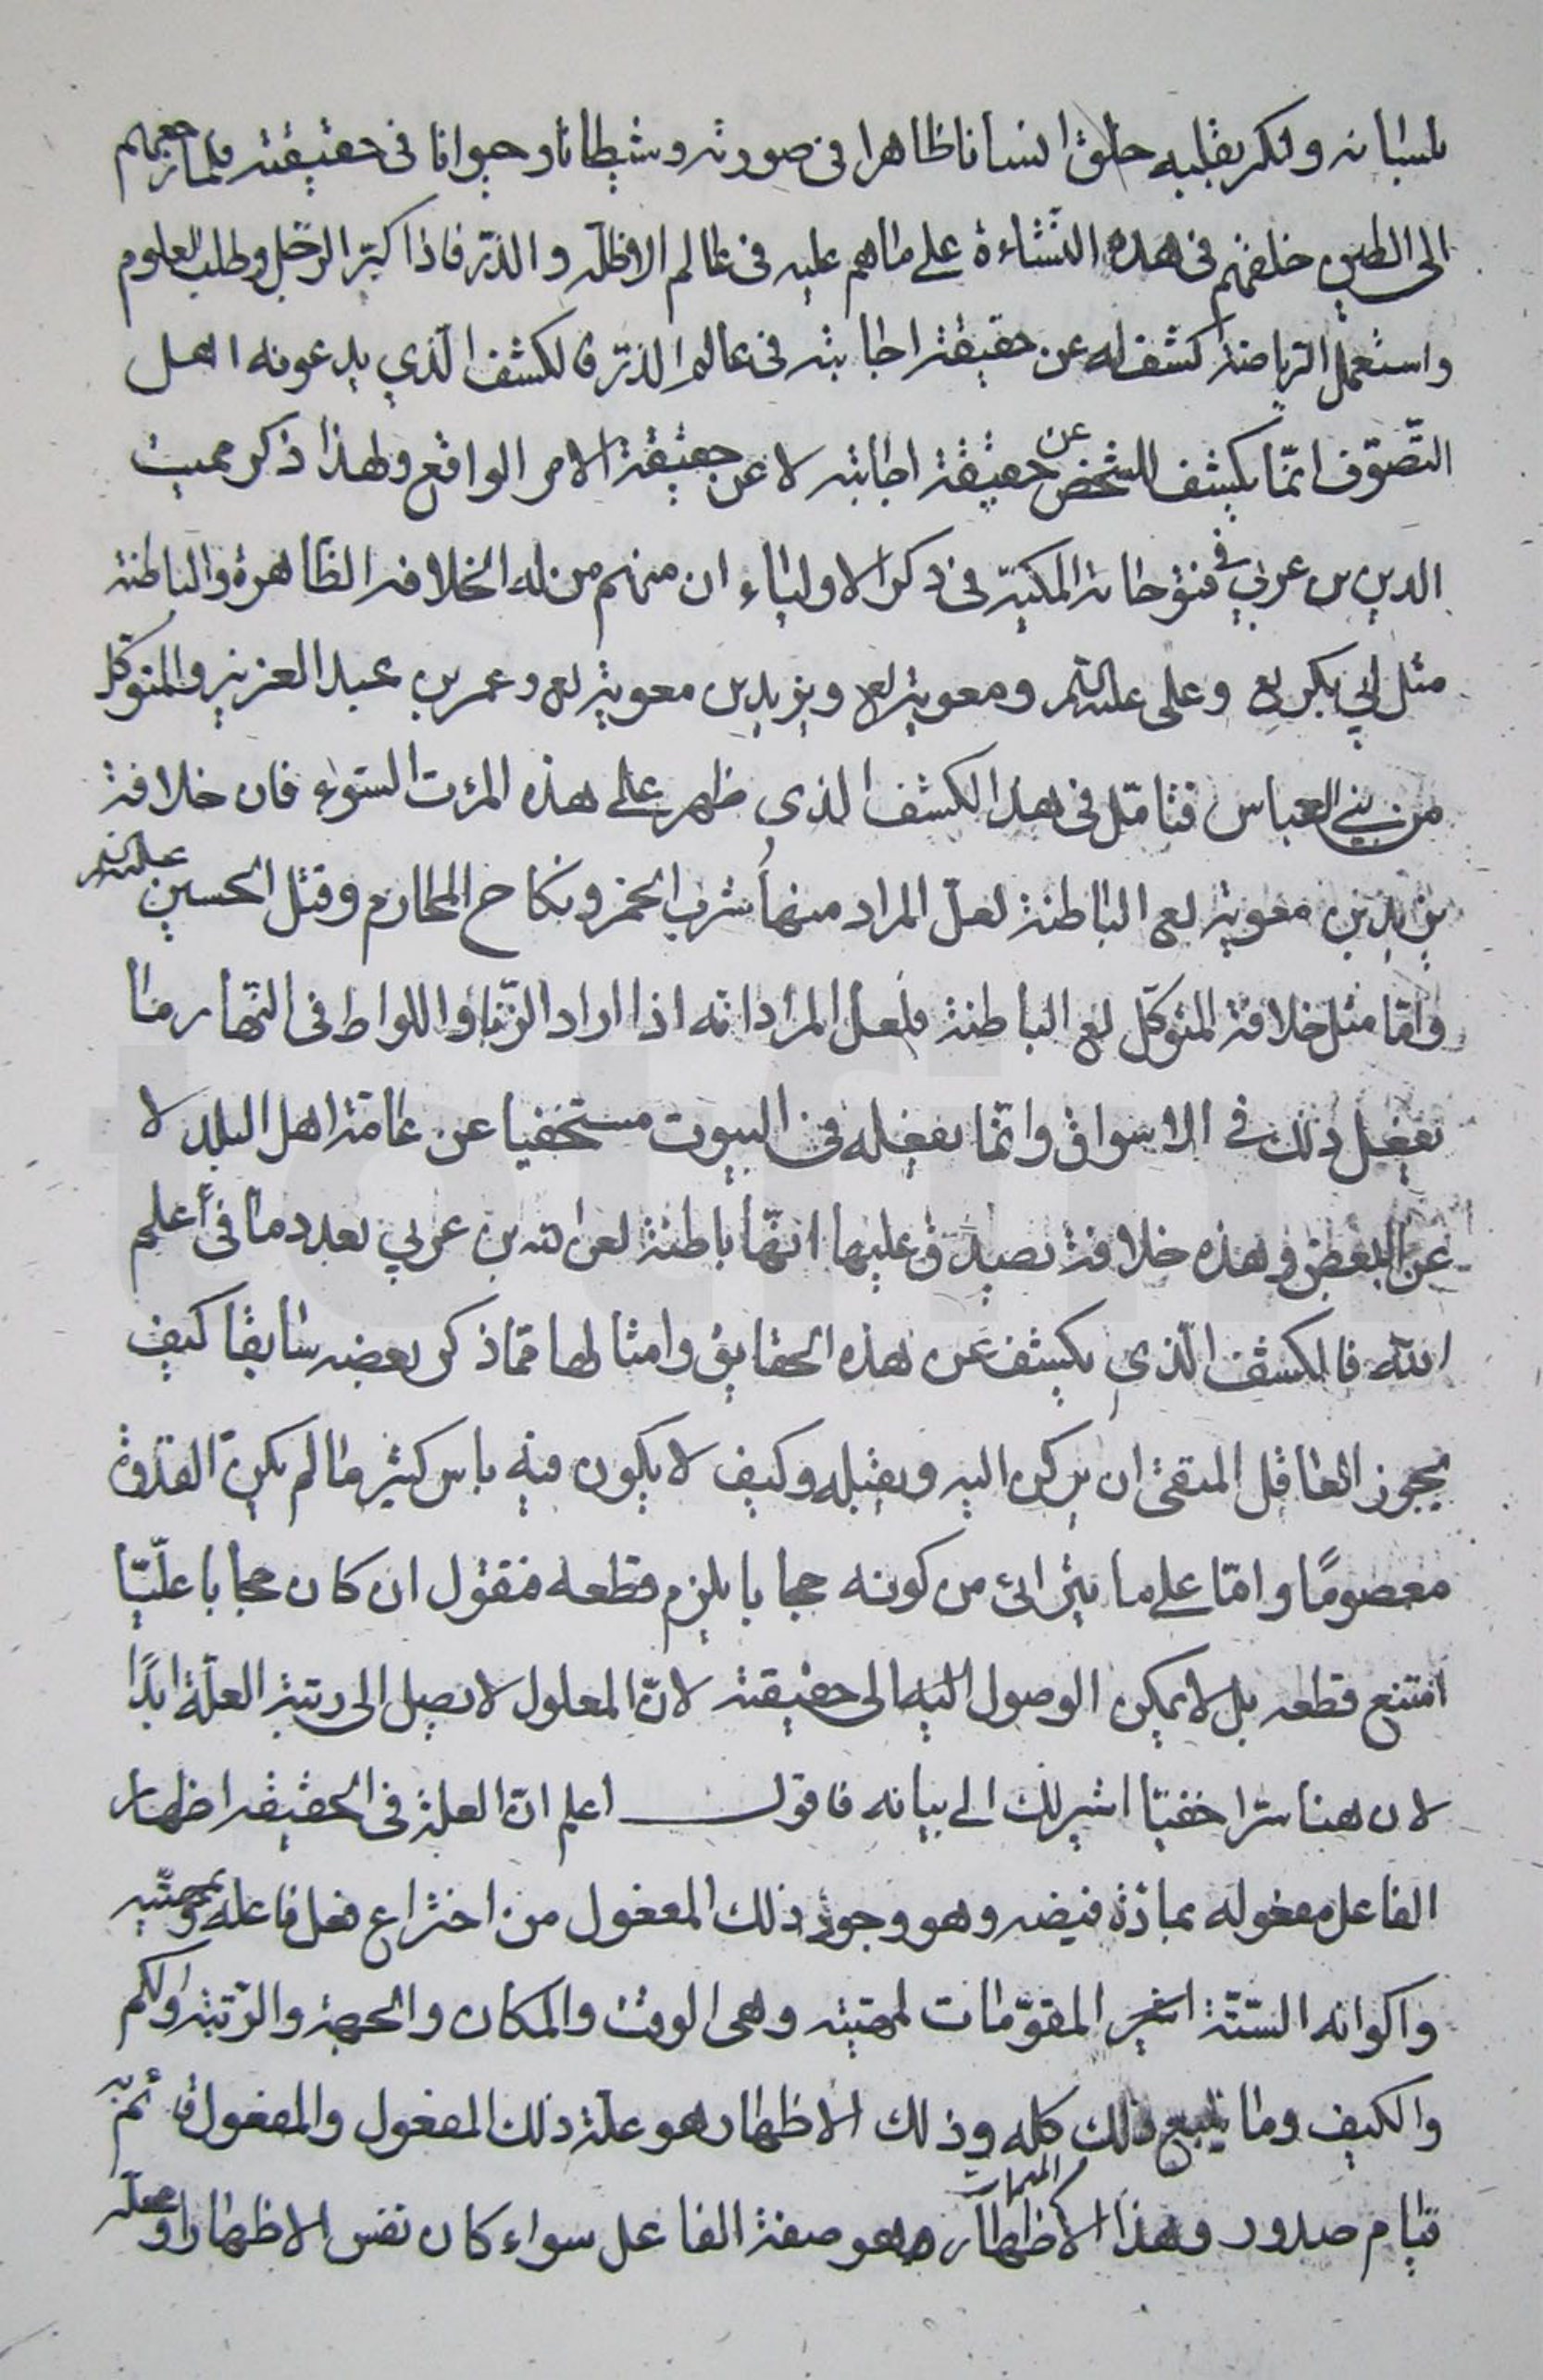 بلسانه وانكر بقلبه خلق انسانا ظاهرا فى صورته وشيطانا وحيوانا فى حقيقته فلما رجعهم
الى الطين خلقهم فى هذه النشاءة على ما هم عليه فى عالم الاظلّة والذرّ فاذا كبر الرّجل وطلب العلوم
واستعمل الرياضة كشف له عن حقيقة اجابته فى عالم الذرّ فالكشف الّذي يدعونه اهل
التّصوّف انّما يكشف للشخص عن حقيقة اجابته لا عن حقيقة الامر الواقع ولهذا ذكر مميت
الدين بن عربي في فتوحاته المكيّة فى ذكر الاولياء ان منهم من له الخلافة الظاهرة والباطنة
مثل ابي بكر لع وعلى عليه السلم ومعوية لع ويزيد بن معوية لع وعمر بن عبد العزيز والمتوكل
من بني العباس فتامّل فى هذا الكشف الذى ظهر على هذه المرءت السّوء فان خلافة
يزيد بن معوية لع الباطنة لعلّ المراد منها شرب الخمر ونكاح المحارم وقتل الحسين عليه السلم
وامّا مثل خلافة المتوكّل لع الباطنة فلعل المراد انّه اذا اراد الزّنا واللواط فى النّهار ما
يفعل ذلك في الاسواق وانّما يفعله فى البيوت مستخفيا عن عامّة اهل البلد لا
عن البعض وهذه خلافة يصدق عليها انّها باطنة لعن الله بن عربي بعدد ما فى علم
الله فالكشف الّذي يكشف عن هذه الحقايق وامثالها ممّا ذكر بعضه سابقا كيف
يجوز العاقل المتقى ان يركن اليه ويقبله وكيف لا يكون فيه باس كثير ما لم يكن القدوة
معصومًا وامّا على ما يترائى من كونه حجابا يلزم قطعه فنقول ان كان حجابا علّيّا
امتنع قطعه بل لا يمكن الوصول اليه الى حقيقته لانّ المعلول لا يصل الى رتبة العلّة ابدًا
لان هنا سّرا خفيّا اشير لك الى بيانه فاقول اعلم انّ العلة فى الحقيقة اظهار
الفاعل مفعوله بمادّة فيضه وهو وجود ذلك المفعول من اختراع فعل فاعله وبمهيّته
واكوانه السّتّة المقوّمات لمهيّته وهى الوقت والمكان والجهة والرّتبة والكم
والكيف وما يتبع ذلك كله وذلك الاظهار هو علّة ذلك المفعول والمفعول قائم به
قيام صدور وهذا الاظهار وهو صفة الفاعل سواء كان نفس الاظهار او